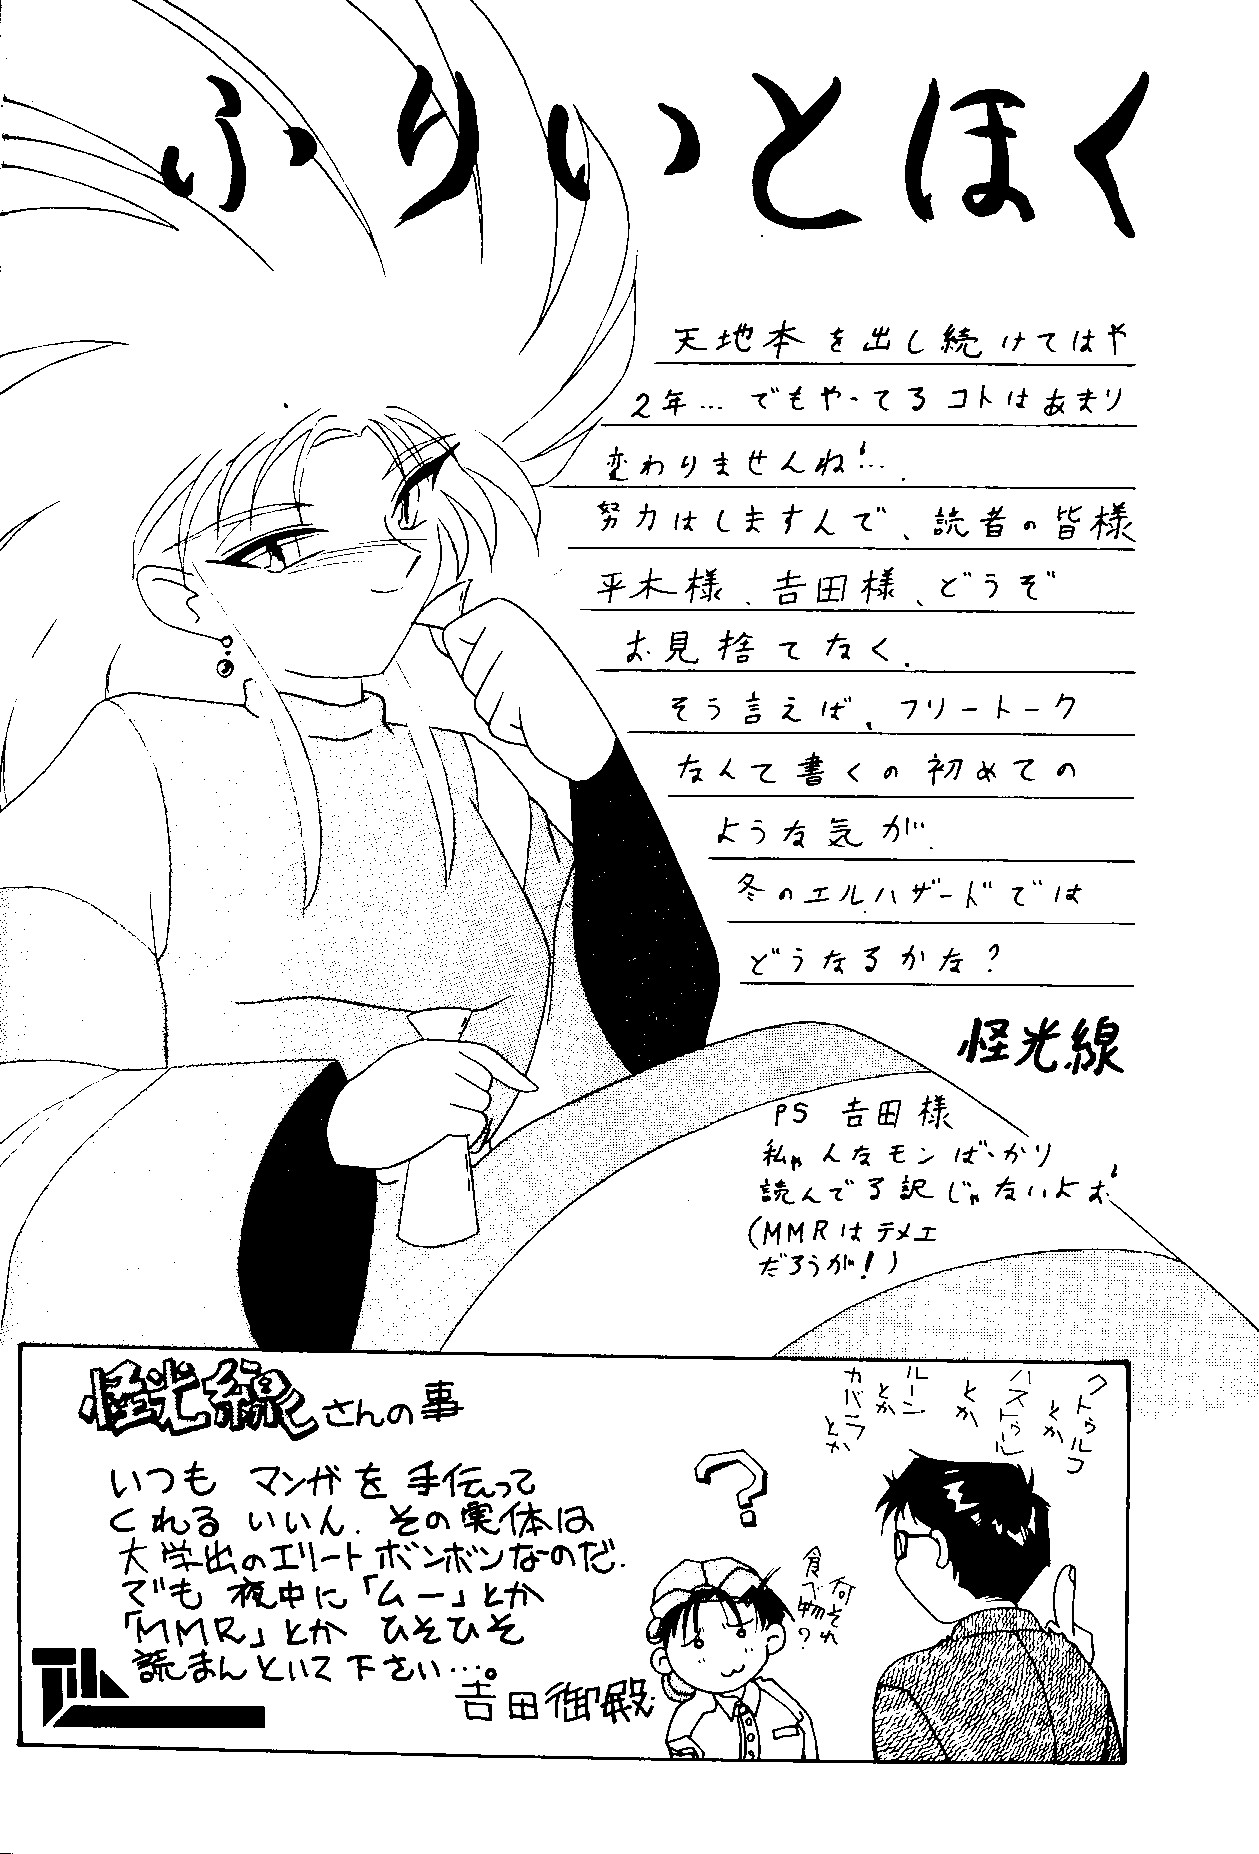 ふりいとほく
天地本を出し続けてはや
2年… でもやってるコトはあまり
変わりませんね!…
努力はしますんで、読者の皆様
平木様、吉田様、どうぞ
お見捨てなく.
そう言えば、フリートーク
なんて書くの初めての
ような気が.
冬のエルハザードでは
どうなるかな?
怪光線
PS 吉田様
私ゃんなモンばっかり
読んでる訳じゃないよお
(MMRはテメエ
だろうが!)
怪光線さんの事
いつも マンガを 手伝って
くれる いいん. その実体は
大学出のエリートボンボンなのだ.
でも 夜中に「ムー」とか
「MMR」とか ひそひそ
読まんといて下さい…。
吉田御殿
クトゥルフ
とか
ハストゥル
とか
ルーン
とか
カバラ
とか
?
何それ
食べ物?